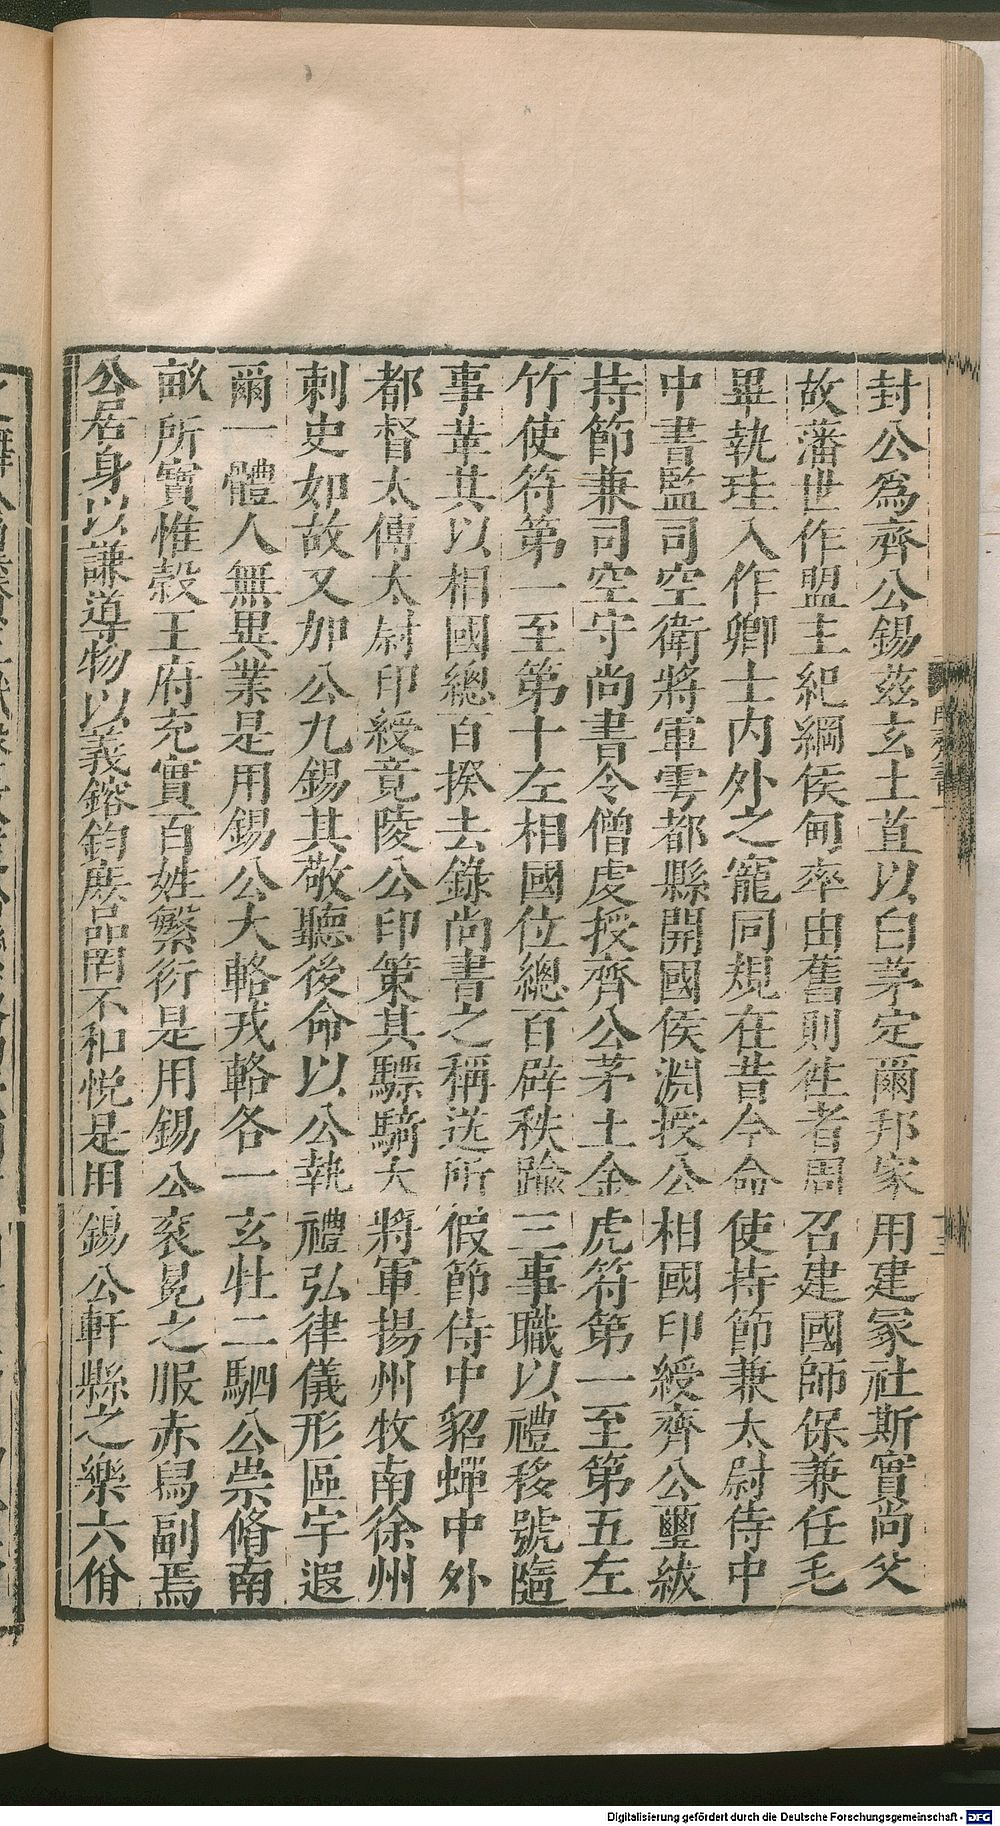 封公爲齊公錫茲玄土苴以白茅定爾邦家用建冢社斯實尚父
故藩世作盟主紀綱侯甸率由舊則徃者周召建國師保兼任毛
畢執珪入作卿士内外之寵同規在昔今命使持節兼太尉侍中
中書監司空衛將軍雩都縣開國侯淵授公相國印綬齊公璽紱
持節兼司空守尚書令僧虔授齊公茅土金虎符第一至第五左
竹使符第一至第十左相國位總百辟秩踰三事職以禮移號隨
事革其以相國總百揆去錄尚書之稱送所假節侍中貂蟬中外
都督太傅太尉印綬竟陵公印策其驃騎大將軍揚州牧南徐州
刺史如故又加公九錫其敬聽後命以公執禮弘律儀形區宇遐
爾一體人無異業是用錫公大輅戎輅各一玄牡二駟公崇脩南
畝所寳惟穀王府充實百姓繁衍是用錫公衮冕之服赤舄副焉
公居身以謙導物以義鎔鈞庶品罔不和悅是用錫公軒縣之樂六佾
Digitalisierung gefördert durch die Deutsche Forschungsgemeinschaft - DFG